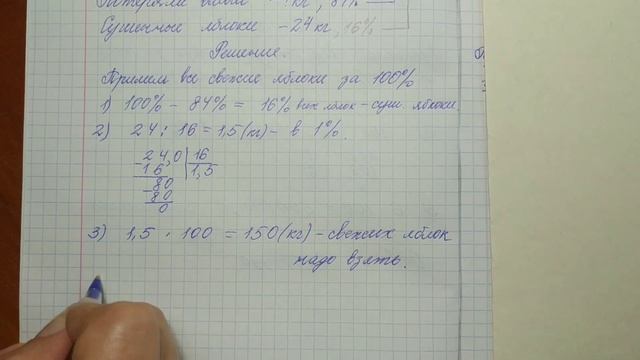 Потеряли воды - ? кг, 84%
Сушёные яблоки - 24 кг, 16%
Решение.
Примем все свежие яблоки за 100%
1) 100% - 84% = 16% всех яблок - суш. яблоки
2) 24 : 16 = 1,5 (кг) - в 1%.
24,0 | 16
16 | 1,5
80
80
0
3) 1,5 · 100 = 150 (кг) - свежих яблок
надо взять.